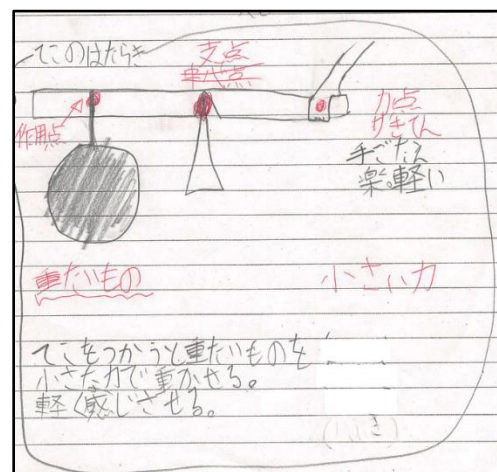 てこのはたらき
支点
作用点
力点
手ごたえ
楽。軽い
重たいもの
小さい力
てこをつかうと重たいものを
小さな力で重かせる。
軽く感じさせる。